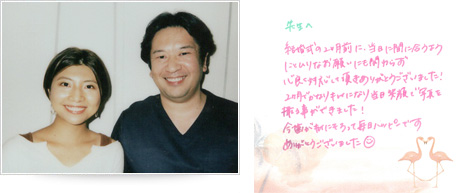 先生へ
結婚式の2ヶ月前に、当日に間に合うよう
にとムリなお願いにも関わらず
心良く対応して頂きありがとうございました!
2ヶ月でかなりキレイになり当日笑顔で写真を
撮る事ができました!
今歯が私にとって毎日ハッピーです
ありがとうございました